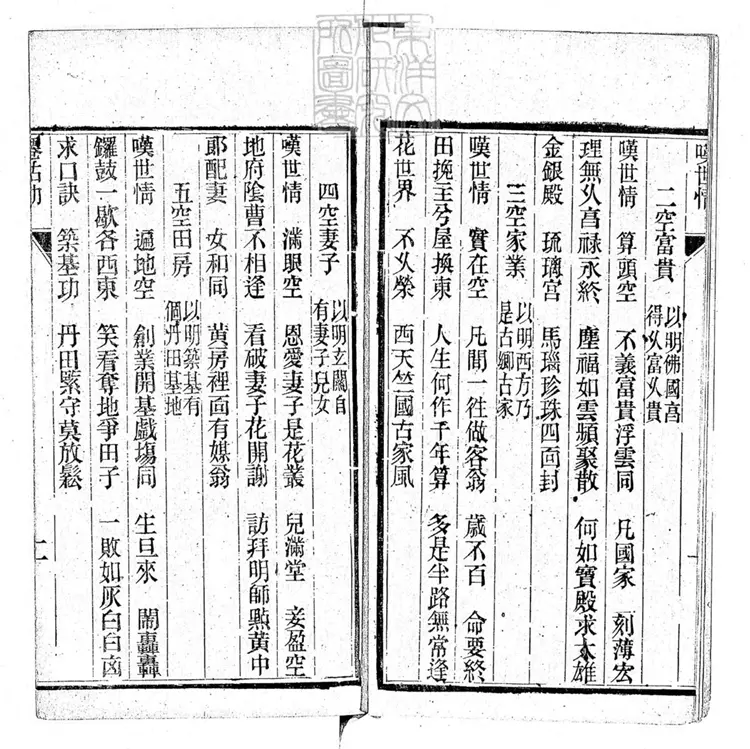 嘆世情
二空富貴 以明佛國富
得久富久貴
嘆世情 算頭空 不義富貴浮雲同 凡國家 刻薄宏
理無久富祿永終 塵福如雲頻聚散 何如寶殿求大雄
金銀殿 琉璃宮 馬瑙珍珠四面封
三空家業 以明西方乃
是古鄉古家
嘆世情 實在空 凡間一徃做客翁 歲不百 命要終
田挽至兮屋換東 人生何作千年算 多是半路無常逢
花世界 不久榮 西天竺國古家風
四空妻子 以明玄關自
有妻子兒女
嘆世情 滿眼空 恩愛妻子是花叢 兒滿堂 妾盈空
地府陰曹不相逢 看破妻子花開謝 訪拜明師㸃黃中
郎配妻 女和同 黃房裡面有媒翁
五空田房 以明築基有
個丹田基地
嘆世情 遍地空 創業開基戲塲同 生旦來 鬧轟轟
鑼鼓一歇各西東 笑看奪地爭田子 一敗如灰白白凶
求口訣 築基功 丹田緊守莫放鬆
二